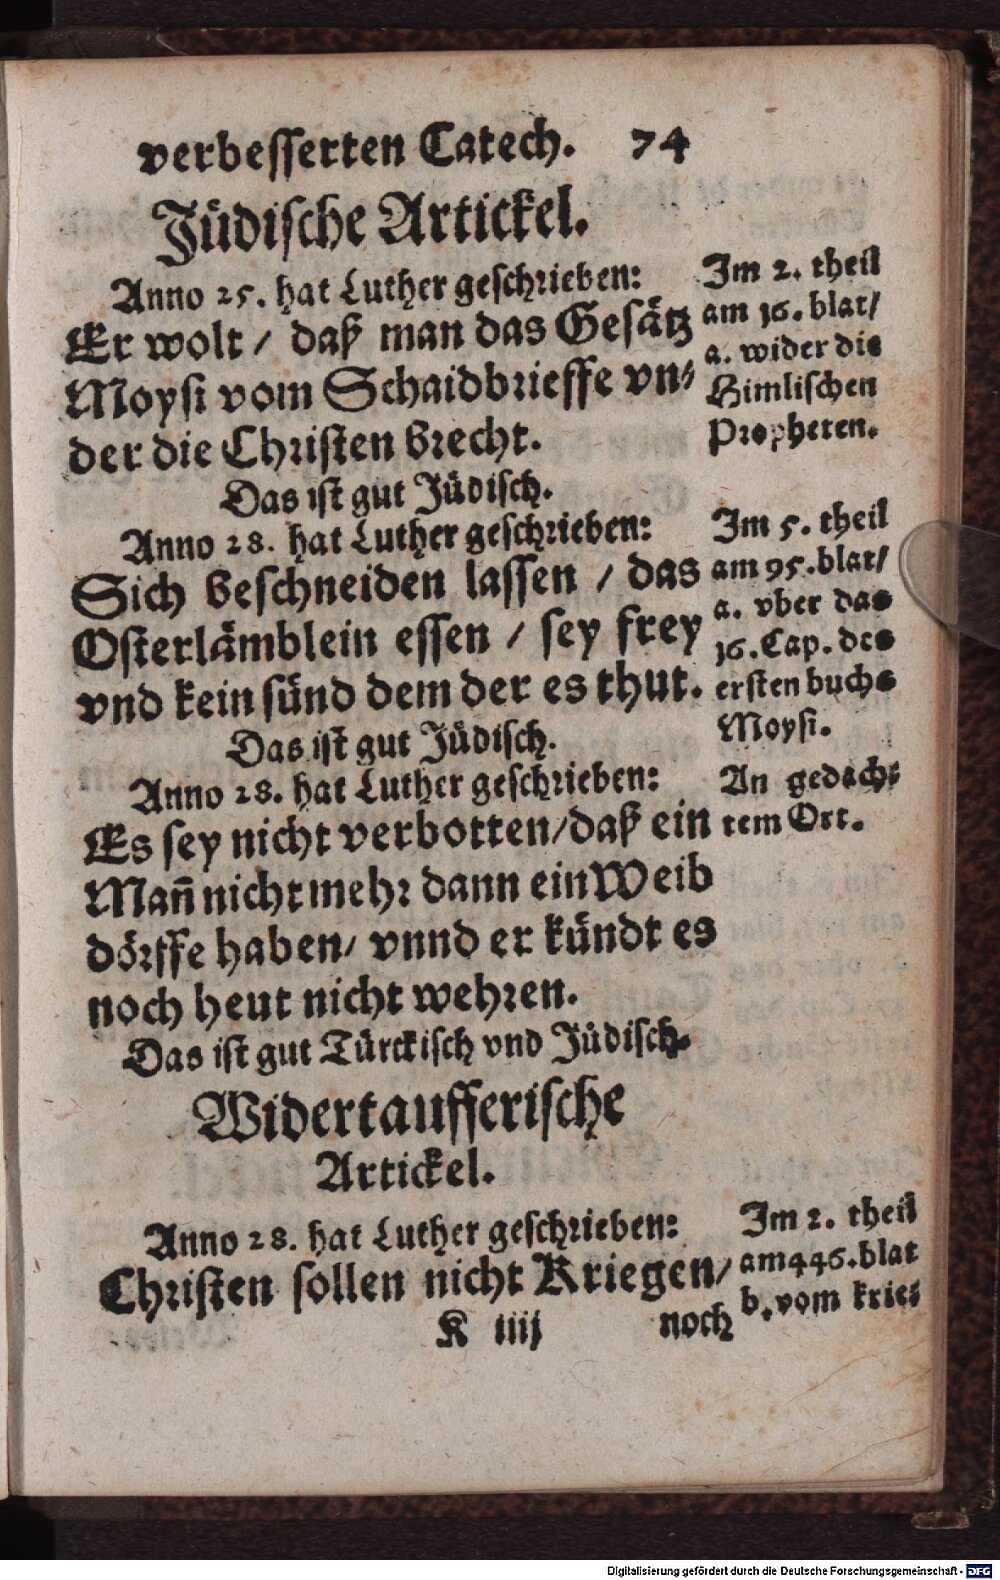 verbesserten Catech. 74
Jüdische Artickel.
Anno 25. hat Luther geschrieben:
Er wolt / daß man das Gesätz
Moysi vom Schaidbrieffe vn-
der die Christen brecht.
Im 2. theil
am 16. blat/
a. wider die
Himlischen
Propheten.
Das ist gut Jüdisch.
Anno 28. hat Luther geschrieben:
Sich beschneiden lassen / das
Osterlämblein essen / sey frey
vnd kein sünd dem der es thut.
Im 5. theil
am 95. blat/
a. vber das
16. Cap. des
ersten buchs
Moysi.
Das ist gut Jüdisch.
Anno 28. hat Luther geschrieben:
Es sey nicht verbotten/daß ein
Mañ nicht mehr dann ein Weib
dörffe haben/ vnnd er kündt es
noch heut nicht wehren.
An gedach-
tem Ort.
Das ist gut Türckisch vnd Jüdisch.
Widertaufferische
Artickel.
Anno 28. hat Luther geschrieben:
Christen sollen nicht Kriegen/
Im 2. theil
am 446. blat
b. vom krie-
K iiij noch
Digitalisierung gefördert durch die Deutsche Forschungsgemeinschaft - DFG